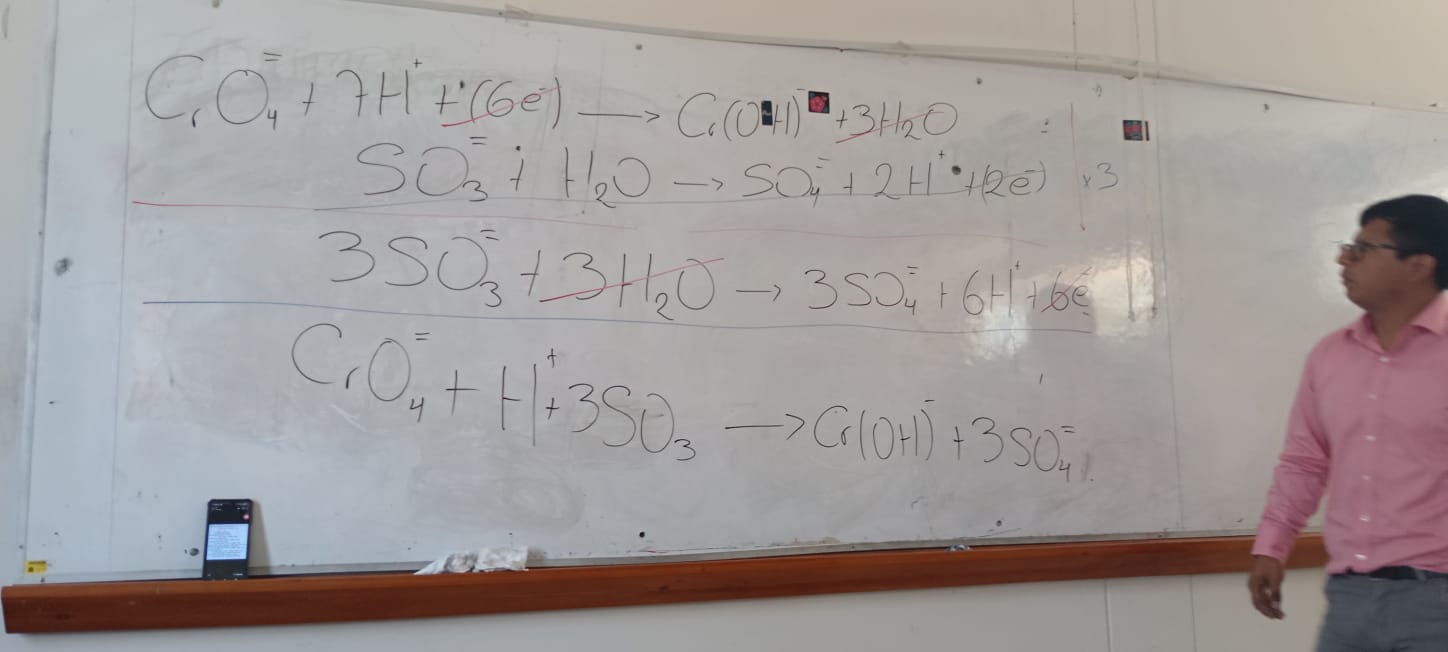 CrO₄⁼ + 7H⁺ + (6e⁻) → Cr(OH)⁻ + 3H₂O
SO₃⁼ + H₂O → SO₄⁼ + 2H⁺ + (2e⁻) x3
3SO₃⁼ + 3H₂O → 3SO₄⁼ + 6H⁺ + 6e⁻
CrO₄⁼ + H⁺ + 3SO₃ → Cr(OH)⁻ + 3SO₄⁼